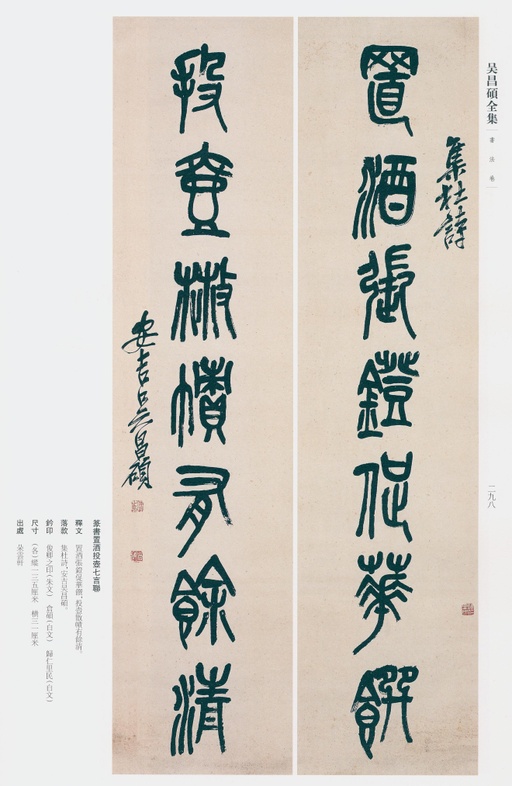 吴昌碩全集
書法卷
二九八
集杜詩
置酒張鐙促華饌
投壺散幘有餘清
安吉吴昌碩
篆書置酒投壺七言聯
釋文 置酒張鐙促華饌,投壺散幘有餘清。
落款 集杜詩。安吉吴昌碩。
鈐印 俊卿之印(朱文) 倉碩(白文) 歸仁里民(白文)
尺寸 (各)縱一三五厘米 横三一厘米
出處 朵雲軒